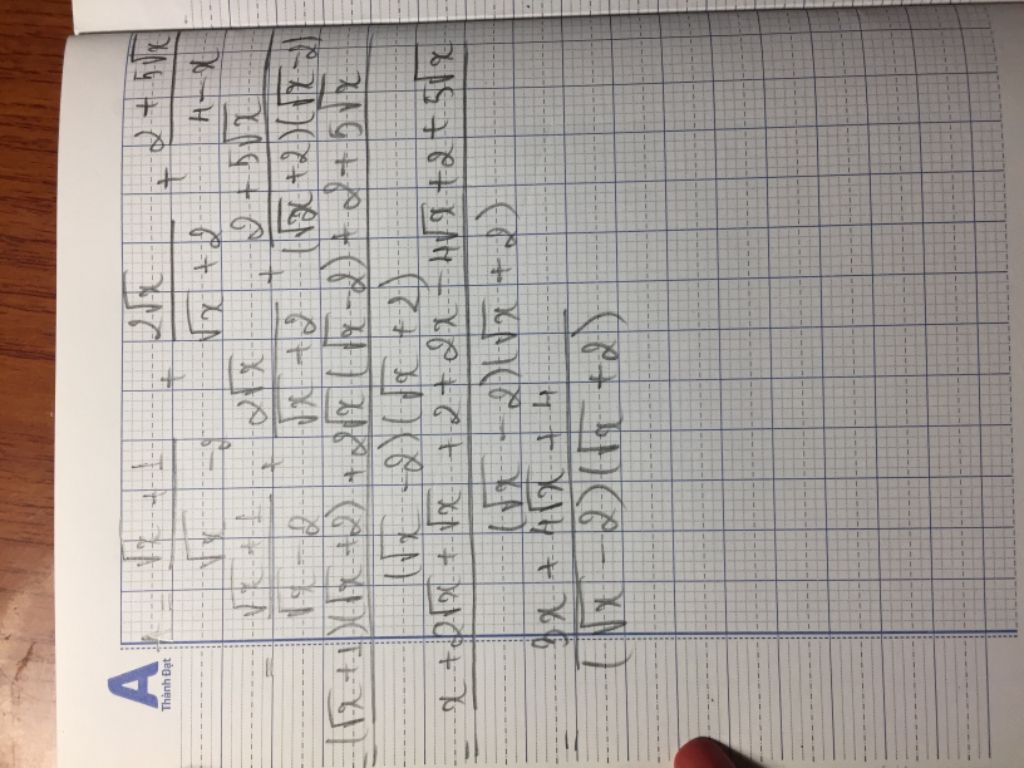 A
Thành Đạt
A = \frac{\sqrt{x}+1}{\sqrt{x}-2} + \frac{2\sqrt{x}}{\sqrt{x}+2} + \frac{2+5\sqrt{x}}{4-x}
= \frac{\sqrt{x}+1}{\sqrt{x}-2} + \frac{2\sqrt{x}}{\sqrt{x}+2} + \frac{2+5\sqrt{x}}{(\sqrt{x}+2)(\sqrt{x}-2)}
= \frac{(\sqrt{x}+1)(\sqrt{x}+2)+2\sqrt{x}(\sqrt{x}-2)+2+5\sqrt{x}}{(\sqrt{x}-2)(\sqrt{x}+2)}
= \frac{x+2\sqrt{x}+\sqrt{x}+2+2x-4\sqrt{x}+2+5\sqrt{x}}{(\sqrt{x}-2)(\sqrt{x}+2)}
= \frac{3x+4\sqrt{x}+4}{(\sqrt{x}-2)(\sqrt{x}+2)}